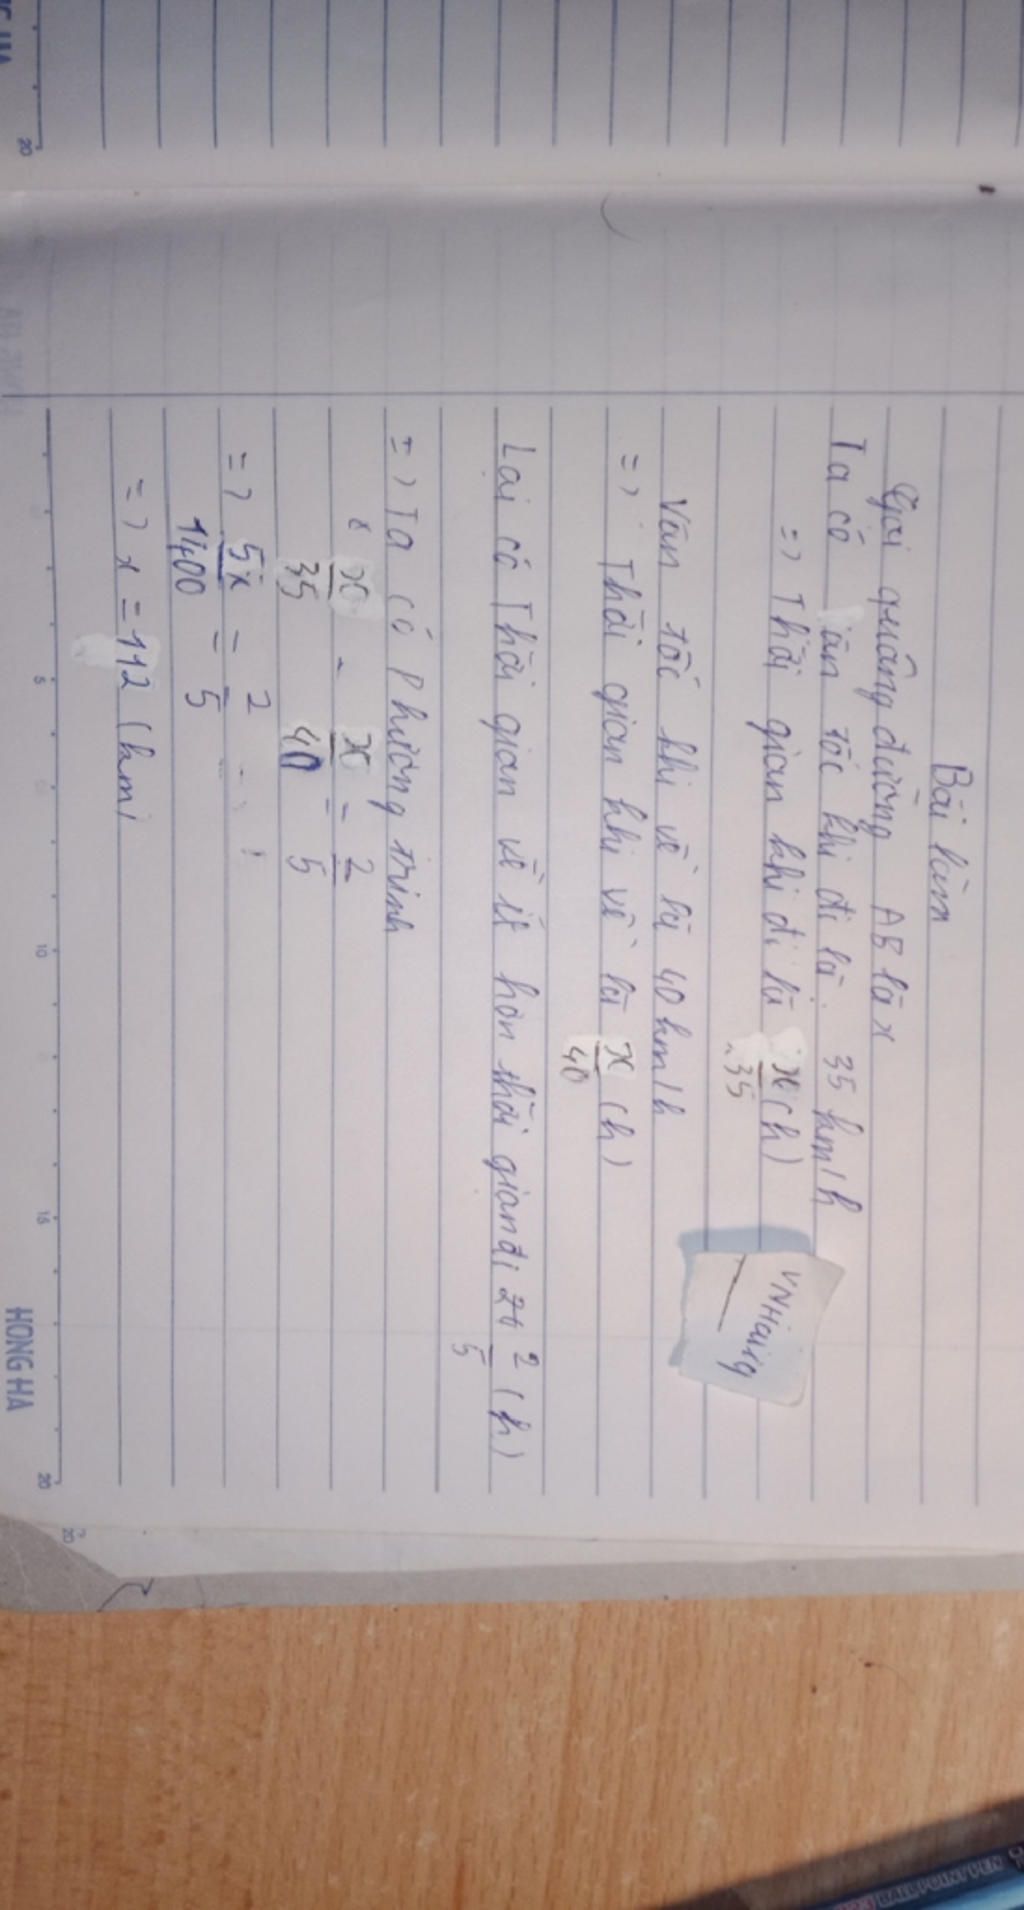 Bài làm
Gọi quãng đường AB là x
Ta có ận tốc khi đi là 35 km/h
=> Thời gian khi đi là x/35 (h)
VNHaing
Vận tốc khi về là 40 km/h
=> Thời gian khi về là x/40 (h)
Lại có Thời gian về ít hơn thời gian đi 2/5 (h)
=> Ta có phương trình
x/35 - x/40 = 2/5
=> 5x/1400 = 2/5
=> x = 112 (km)
5 10 15 20
HONG HA
20
BALLPOINT PEN